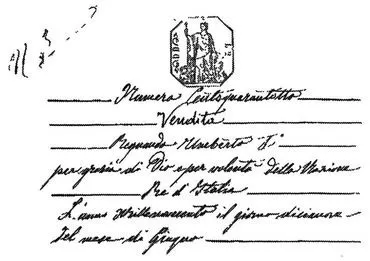 Numero Centoquarantotto
Vendita
Regnando Umberto I°
per grazia di Dio e per volontà della Nazione
Re d'Italia
L'anno Millenovecento il giorno dicianove
del mese di Giugno